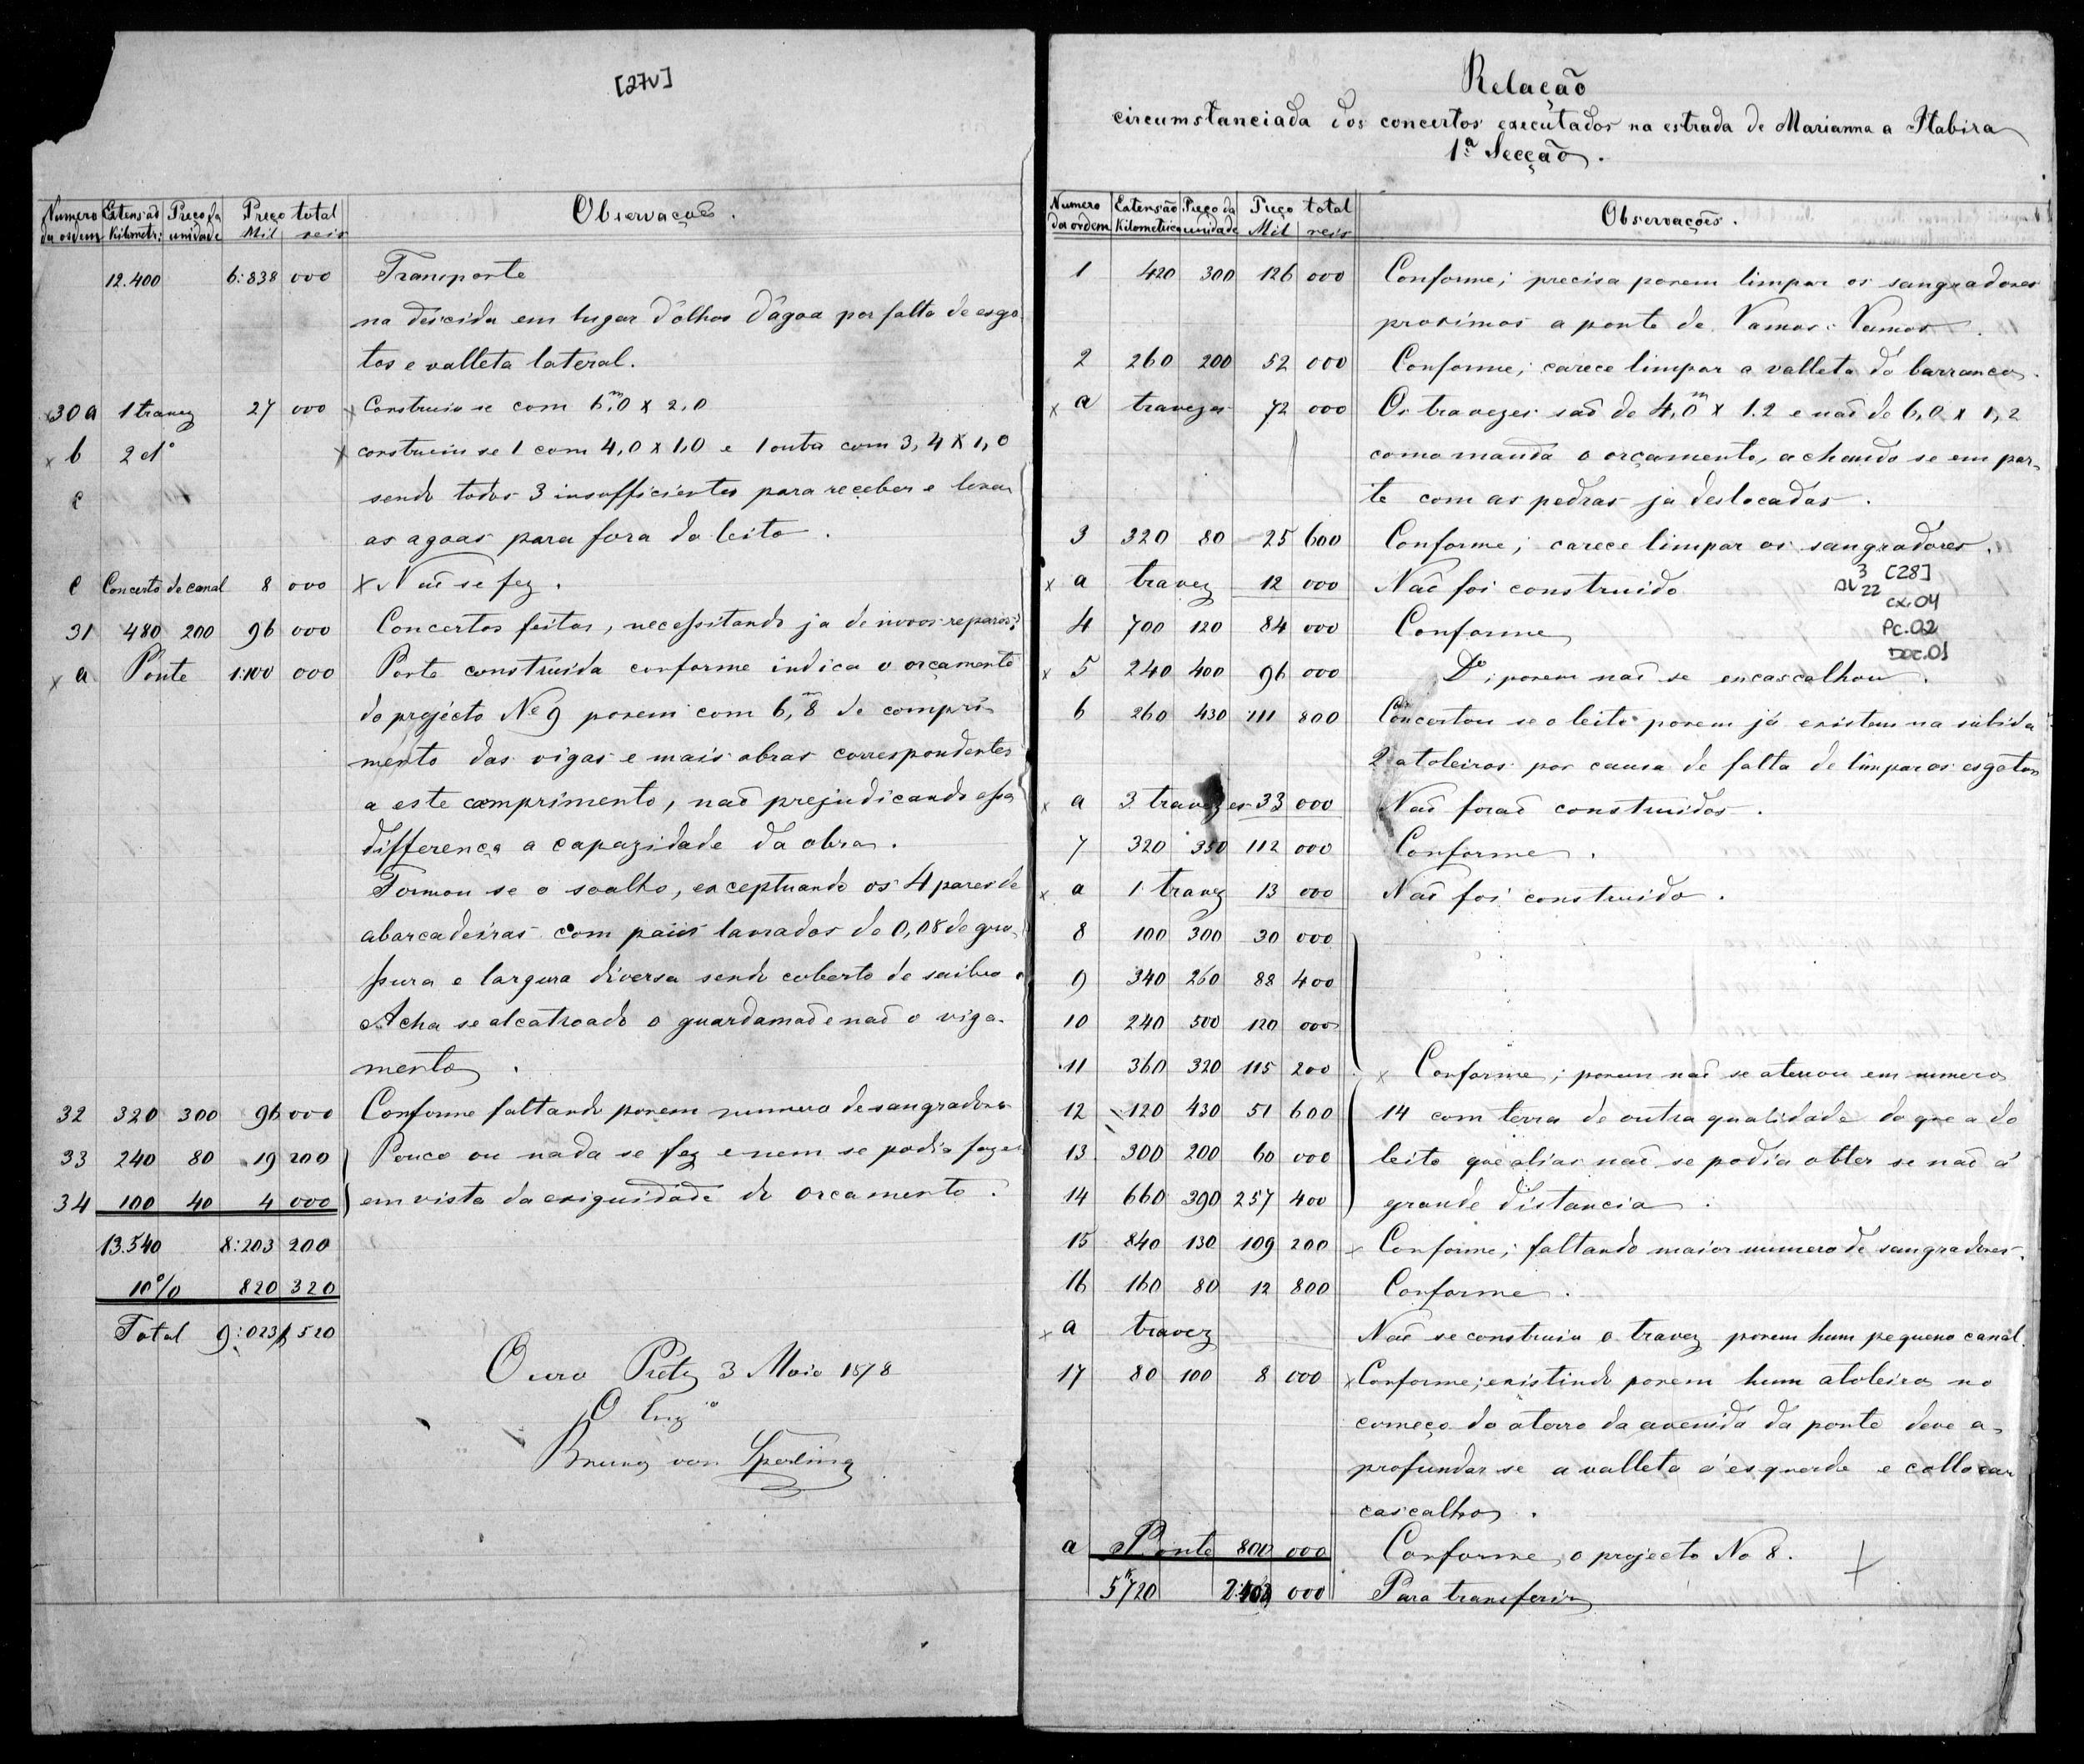 [27v]
Numero da ordem | Extensaõ Kilometr: | Preço da unidade | Preço total Mil reis | Observações.
12.400 6:838 000 Transporte
na descida em lugar d'olhos d'agoa por falta de esgo-
tos e valleta lateral.
x 30 a 1 travez 27 000 x Construio se com 6,m0 x 2,0
x b 2 do x construiu se 1 com 4,0 x 1,0 e 1 outra com 3,4 x 1,0
c sendo todos 3 insufficientes para receber e levar
as agoas para fora do leito.
c Concerto de canal 8 000 x Naõ se fez.
31 480 200 96 000 Concertos feitos, necessitando ja de novos reparos.
x a Ponte 1:100 000 Ponte construida conforme indica o orçamento
do projécto No 9 porem com 6,m8 de compri-
mento das vigas e mais obras correspondentes
a este comprimento, naõ prejudicando essa
differença a capazidade da obra.
Formou se o soalho, exceptuando os 4 pares de
abarcadeiras com paus lavrados de 0,08 de gro-
ssura e largura diversa sendo coberto de saibro
Acha se alcatroado o guardamaõ e naõ o viga-
mento.
32 320 300 96 000 Conforme faltando porem numero de sangradores
33 240 80 19 200 Pouco ou nada se fez e nem se podia fazer
34 100 40 4 000 em vista da exiguidade do orcamento.
13.540 8:203 200
10% 820 320
Total 9:023$520
Ouro Preto 3 Maio 1878
O Engo
Bruno von Sperling
Relação
circumstanciada dos concertos executados na estrada de Marianna a Itabira
1ª Secção.
Numero da ordem | Extensão Kilometrica | Preço da unidade | Preço total Mil reis | Observações.
1 420 300 126 000 Conforme; precisa porem limpar os sangradores
proximos a ponte de Vamos-Vamos.
2 260 200 52 000 Conforme; carece limpar a valleta do barranco.
x a travezes 72 000 Os travezes saõ de 4,m0 x 1.2 e naõ de 6,0 x 1,2
como manda o orçamento, achando se em par-
te com as pedras ja deslocadas.
3 320 80 25 600 Conforme; carece limpar os sangradores.
x a travez 12 000 Naõ foi construido
3 [28]
22
cx.04
Pc.02
Doc.01
4 700 120 84 000 Conforme
x 5 240 400 96 000 Do, porem naõ se encascalhou.
6 260 430 111 800 Concertou se o leito porem já existem na subida
2 atoleiros por causa de falta de limpar os esgotos
x a 3 travezes 33 000 Naõ foraõ construidos.
7 320 350 112 000 Conforme.
x a 1 travez 13 000 Naõ foi construido.
8 100 300 30 000
9 340 260 88 400
10 240 500 120 000
11 360 320 115 200 x Conforme; porem naõ se aterrou em numero
12 120 430 51 600 14 com terra de outra qualidade do que a do
13 300 200 60 000 leito que alias naõ se podia obter se naõ á
14 660 390 257 400 grande distancia.
15 840 130 109 200 x Conforme; faltando maior numero de sangradores.
16 160 80 12 800 Conforme.
x a travez Naõ se construiu o travez porem hum pequeno canal.
17 80 100 8 000 x Conforme; existindo porem hum atoleiro no
começo do aterro da avenida da ponte deve a-
profundar se a valleta á esquerda e collocar
cascalho.
a Ponte 800 000 Conforme, o projecto No 8.
5k720 000 Para transferir